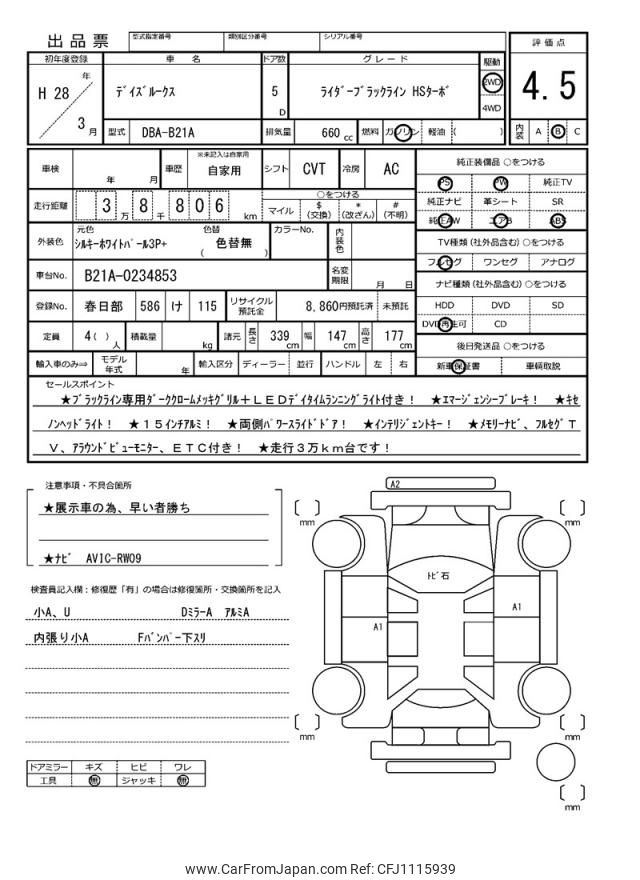 出品票
型式指定番号 類別区分番号 シリアル番号
初年度登録 車 名 ドア数 グレード 駆動 評価点
H 28 年 3 月
デイズルークス
5 D
ライダーブラックライン HSターボ
2WD
4WD
4.5
型式 DBA-B21A 排気量 660 cc 燃料 ガソリン 軽油 ( )
内装 A B C
車検 年 月 車歴 ※未記入は自家用 自家用 シフト CVT 冷房 AC
走行距離 3万8千806 km
○をつける
マイル $(交換) *(改ざん) #(不明)
純正装備品 ○をつける
PS PW 純正TV
純正ナビ 革シート SR
純正AW エアB ABS
外装色 元色 シルキーホワイトパール3P+ 色替 ( 色替無 ) カラーNo. 内装色
TV種類(社外品含む)○をつける
フルセグ ワンセグ アナログ
車台No. B21A-0234853 名変期限 月 日
ナビ種類(社外品含む)○をつける
登録No. 春日部 586 け 115 リサイクル預託金 8,860円預託済 未預託
HDD DVD SD
DVD再生可 CD
定員 4( )人 積載量 kg 諸元 長さ 339 cm 幅 147 cm 高さ 177 cm
後日発送品 ○をつける
輸入車のみ⇒ モデル年式 年 輸入区分 ディーラー 並行 ハンドル 左 右
新車保証書 車輌取説
セールスポイント
★ブラックライン専用ダーククロームメッキグリル+LEDデイタイムランニングライト付き! ★エマージェンシーブレーキ! ★キセ
ノンヘッドライト! ★15インチアルミ! ★両側パワースライドドア! ★インテリジェントキー! ★メモリーナビ、フルセグT
V、アラウンドビューモニター、ETC付き! ★走行3万km台です!
注意事項・不具合箇所
★展示車の為、早い者勝ち
★ナビ AVIC-RW09
検査員記入欄:修復歴「有」の場合は修復箇所・交換箇所を記入
小A、U DミラーA アルミA
内張り小A Fバンパー下スリ
ドアミラー キズ ヒビ ワレ
工具 無 ジャッキ 無
A2
トビ石
A1
A1
mm
mm
mm
mm
mm
www.CarFromJapan.com Ref: CFJ1115939